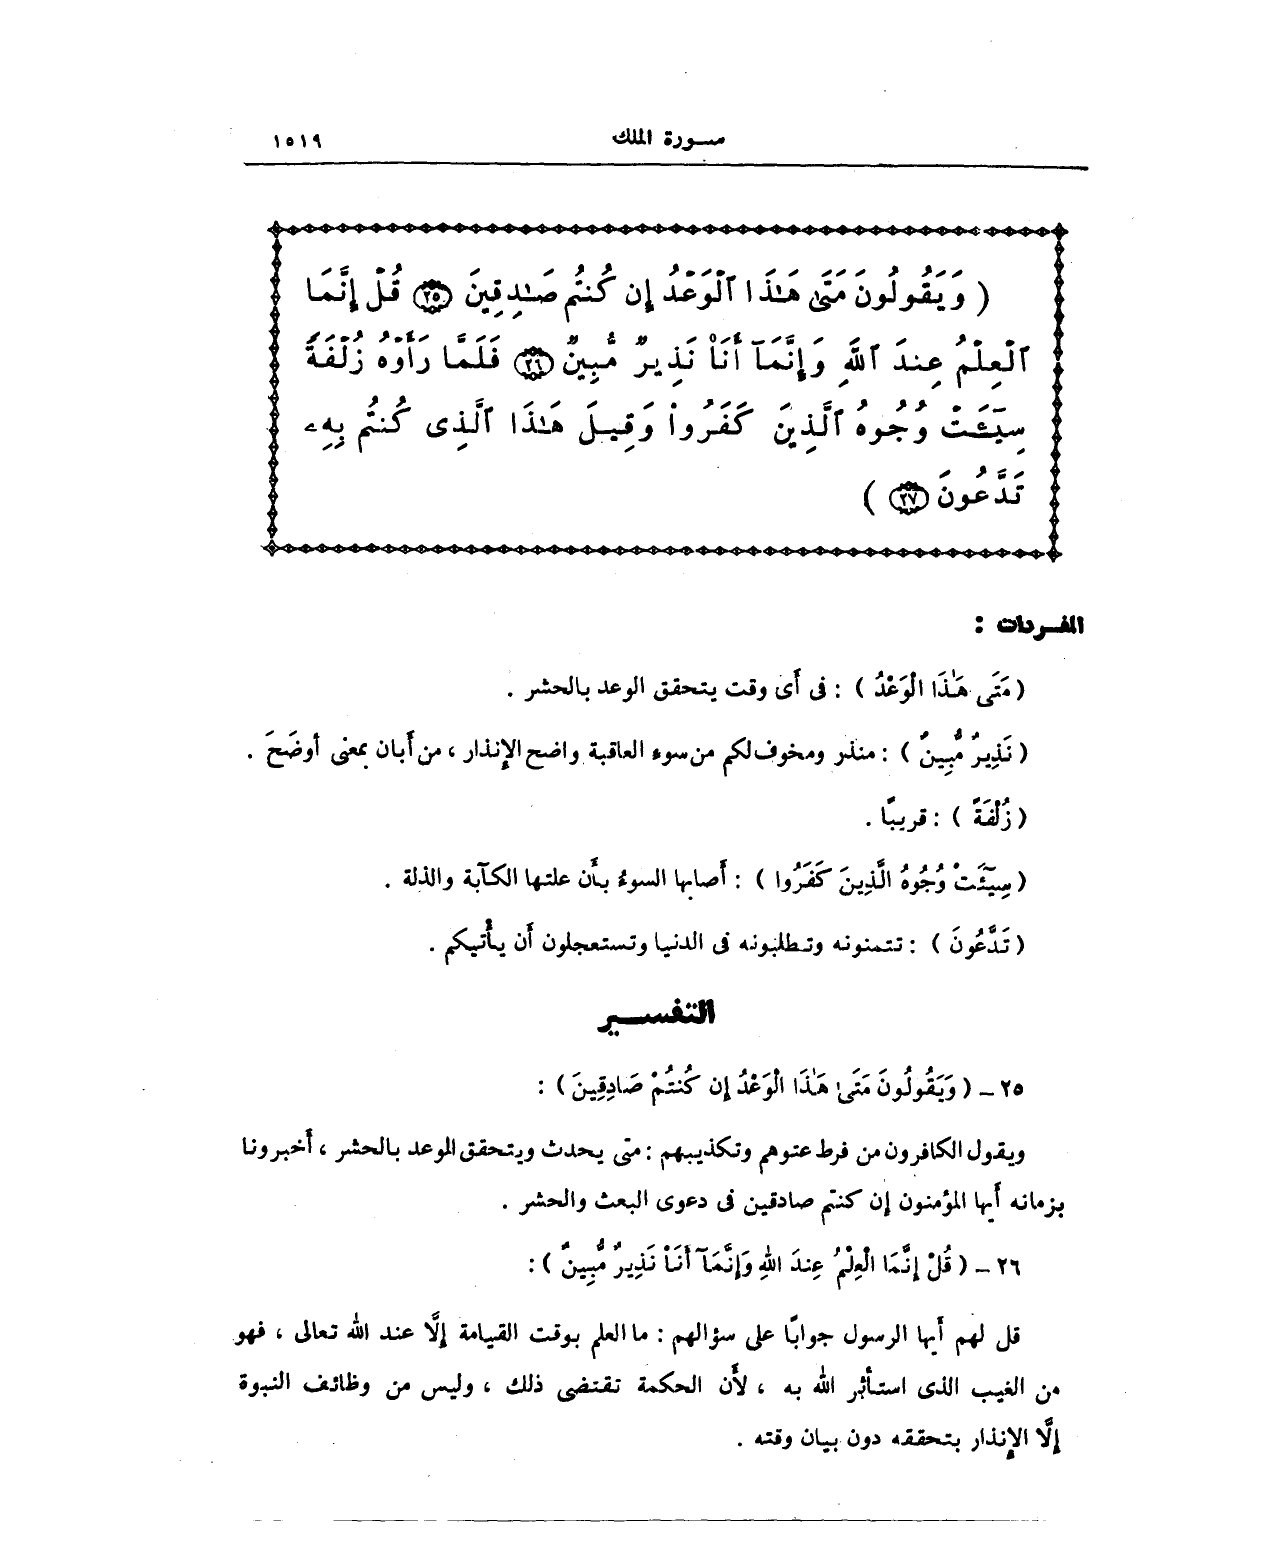 سورة الملك ١٥١٩
( وَيَقُولُونَ مَتَىٰ هَـٰذَا ٱلْوَعْدُ إِن كُنتُمْ صَـٰدِقِينَ ٢٥ قُلْ إِنَّمَا
ٱلْعِلْمُ عِندَ ٱللَّهِ وَإِنَّمَآ أَنَا۠ نَذِيرٌ مُّبِينٌ ٢٦ فَلَمَّا رَأَوْهُ زُلْفَةً
سِيٓـَٔتْ وُجُوهُ ٱلَّذِينَ كَفَرُوا۟ وَقِيلَ هَـٰذَا ٱلَّذِى كُنتُم بِهِۦ
تَدَّعُونَ ٢٧ )
المفردات :
( مَتَى هَـٰذَا الْوَعْدُ ) : فى أَى وقت يتحقق الوعد بالحشر .
( نَذِيرٌ مُّبِينٌ ) : منذر ومخوف لكم من سوء العاقبة واضح الإِنذار ، من أَبان بمعنى أَوضَحَ .
( زُلْفَةً ) : قريبًا .
( سِيٓئَتْ وُجُوهُ الَّذِينَ كَفَرُوا ) : أَصابها السوءُ بأَن علتها الكآبة والذلة .
( تَدَّعُونَ ) : تتمنونه وتطلبونه فى الدنيا وتستعجلون أَن يأْتيكم .
التفسير
٢٥ ــ ( وَيَقُولُونَ مَتَىٰ هَـٰذَا الْوَعْدُ إِن كُنتُمْ صَادِقِينَ ) :
ويقول الكافرون من فرط عتوهم وتكذيبهم : متى يحدث ويتحقق الموعد بالحشر ، أَخبرونا
بزمانه أَيها المؤمنون إن كنتم صادقين فى دعوى البعث والحشر .
٢٦ ــ ( قُلْ إِنَّمَا الْعِلْمُ عِندَ اللهِ وَإِنَّمَآ أَنَاْ نَذِيرٌ مُّبِينٌ ) :
قل لهم أَيها الرسول جوابًا على سؤالهم : ما العلم بوقت القيامة إِلَّا عند الله تعالى ، فهو
من الغيب الذى استأْثر الله به ، لأَن الحكمة تقتضى ذلك ، وليس من وظائف النبوة
إِلَّا الإِنذار بتحققه دون بيان وقته .